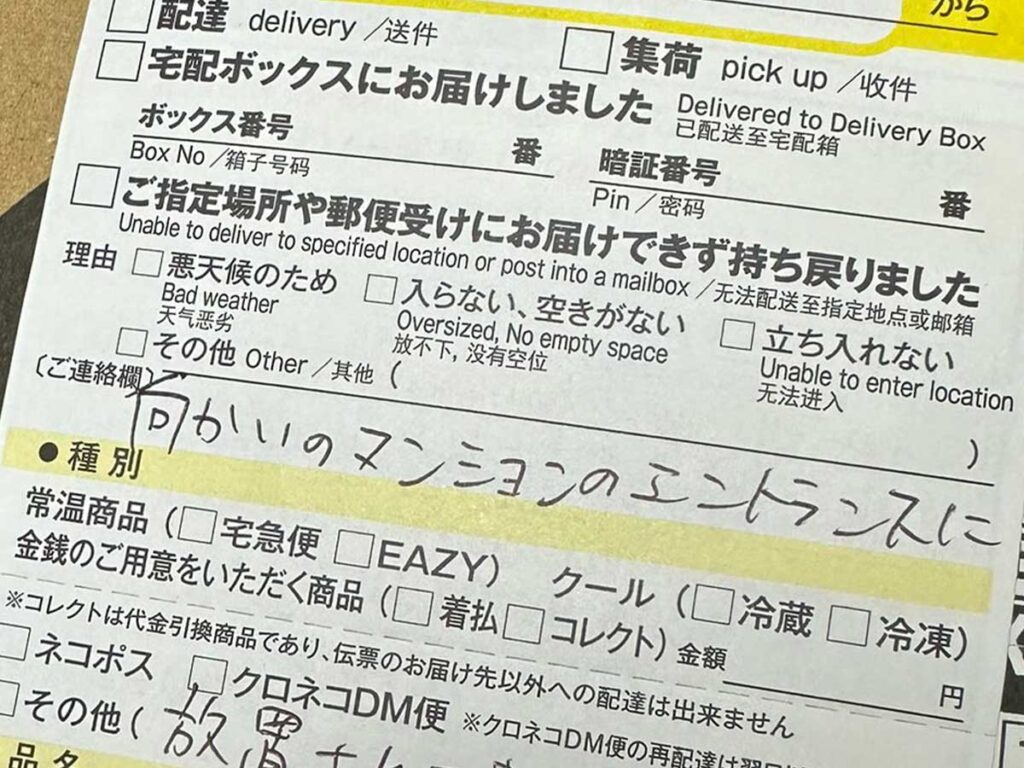 から
□配達 delivery /送件
□集荷 pick up /收件
□宅配ボックスにお届けしました Delivered to Delivery Box
已配送至宅配箱
ボックス番号 番
Box No /箱子号码
暗証番号 番
Pin /密码
□ご指定場所や郵便受けにお届けできず持ち戻りました
Unable to deliver to specified location or post into a mailbox /无法配送至指定地点或邮箱
理由 □悪天候のため
Bad weather
天气恶劣
□入らない、空きがない
Oversized, No empty space
放不下, 没有空位
□立ち入れない
Unable to enter location
无法进入
□その他 Other /其他 ( )
〔ご連絡欄〕
向かいのマンションのエントランスに
●種別
常温商品 (□宅急便 □EAZY) クール (□冷蔵 □冷凍)
金銭のご用意をいただく商品 (□着払 □コレクト) 金額 円
※コレクトは代金引換商品であり、伝票のお届け先以外への配達は出来ません
□ネコポス □クロネコDM便 ※クロネコDM便の再配達は翌日
□その他 ( 放置さ
品名